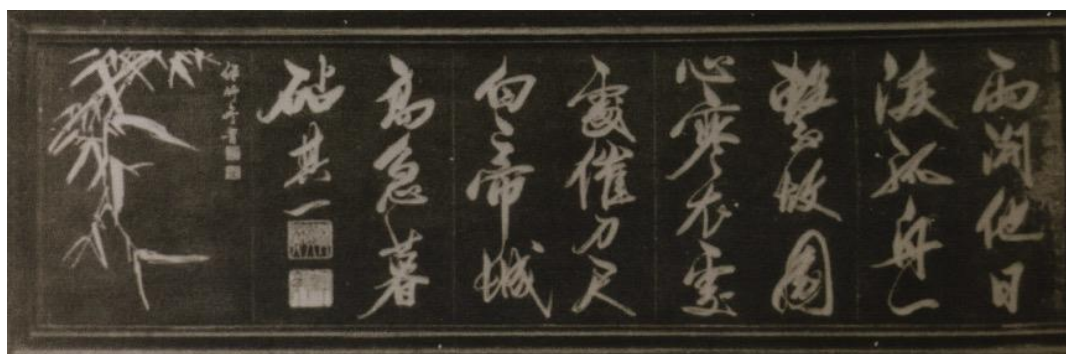 兩開他日
淚孤舟一
繫故園
心寒衣處
處催刀尺
白帝城
高急暮
砧其一